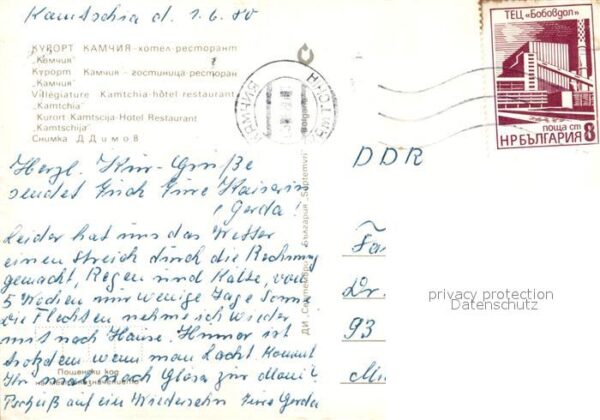 Kamtschia d. 1.6.80
КУРОРТ КАМЧИЯ-хотел-ресторант
„Камчия"
Курорт Камчия - гостиница-ресторан
„Камчия"
Villégiature Kamtchia-hôtel-restaurant
„Kamtchia"
Kurort Kamtscija-Hotel Restaurant
„Kamtschija"
Снимка Д Димов
ТЕЦ „Бобовдол"
поща ст 8
НР БЪЛГАРИЯ
КАМЧИЯ
Herzl. Kur-Grüße
sendet Euch Eure Kaiserin
Gerda.
Leider hat uns das Wetter
einen Streich durch die Rechnung
gemacht, Regen und Kälte, von
5 Wochen nur wenige Tage Sonne
die Flechten nehme ich wieder
mit nach Hause. Humor ist
trotzdem wenn man lacht. Kommt
Ihr mal nach
Tschüß auf ein Wiedersehn Eure Gerda
Пощенски код
на местоназначението
ДИ „Септември" България „Septemvri" Bulgaria
DDR
Fa
Dr.
93
privacy protection
Datenschutz